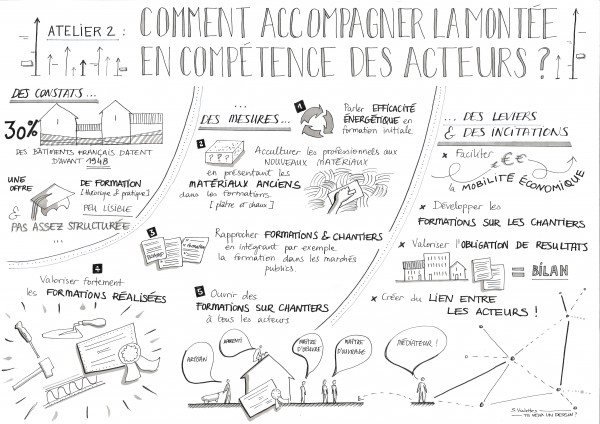 ATELIER 2 :
COMMENT ACCOMPAGNER LA MONTÉE
EN COMPÉTENCE DES ACTEURS ?
DES CONSTATS...
30%
DES BÂTIMENTS FRANÇAIS DATENT
D'AVANT 1948
UNE
OFFRE
DE FORMATION
[théorique & pratique]
PEU LISIBLE
& PAS ASSEZ STRUCTURÉE
...
...
DES MESURES...
1
Parler EFFICACITÉ
ÉNERGÉTIQUE en
formation initiale
2
? ? ?
Acculturer les professionnels aux
NOUVEAUX MATÉRIAUX
en présentant les
MATÉRIAUX ANCIENS
dans les formations.
[plâtre et chaux]
3
Rapprocher FORMATIONS & CHANTIERS
en intégrant par exemple
la formation dans les marchés
publics.
4
Valoriser fortement
les FORMATIONS RÉALISÉES
5
Ouvrir des
FORMATIONS SUR CHANTIERS
à tous les acteurs
ARTISAN
APPRENTI
MAÎTRE
D'OEUVRE
MAÎTRE
D'OUVRAGE
MÉDIATEUR !
...
DES LEVIERS
& DES INCITATIONS
× Faciliter
€€
la MOBILITÉ ÉCONOMIQUE
× Développer les
FORMATIONS SUR LES CHANTIERS
× Valoriser l'OBLIGATION DE RESULTATS
= BILAN
× Créer du LIEN ENTRE
LES ACTEURS !
TU VEUX UN DESSIN ?